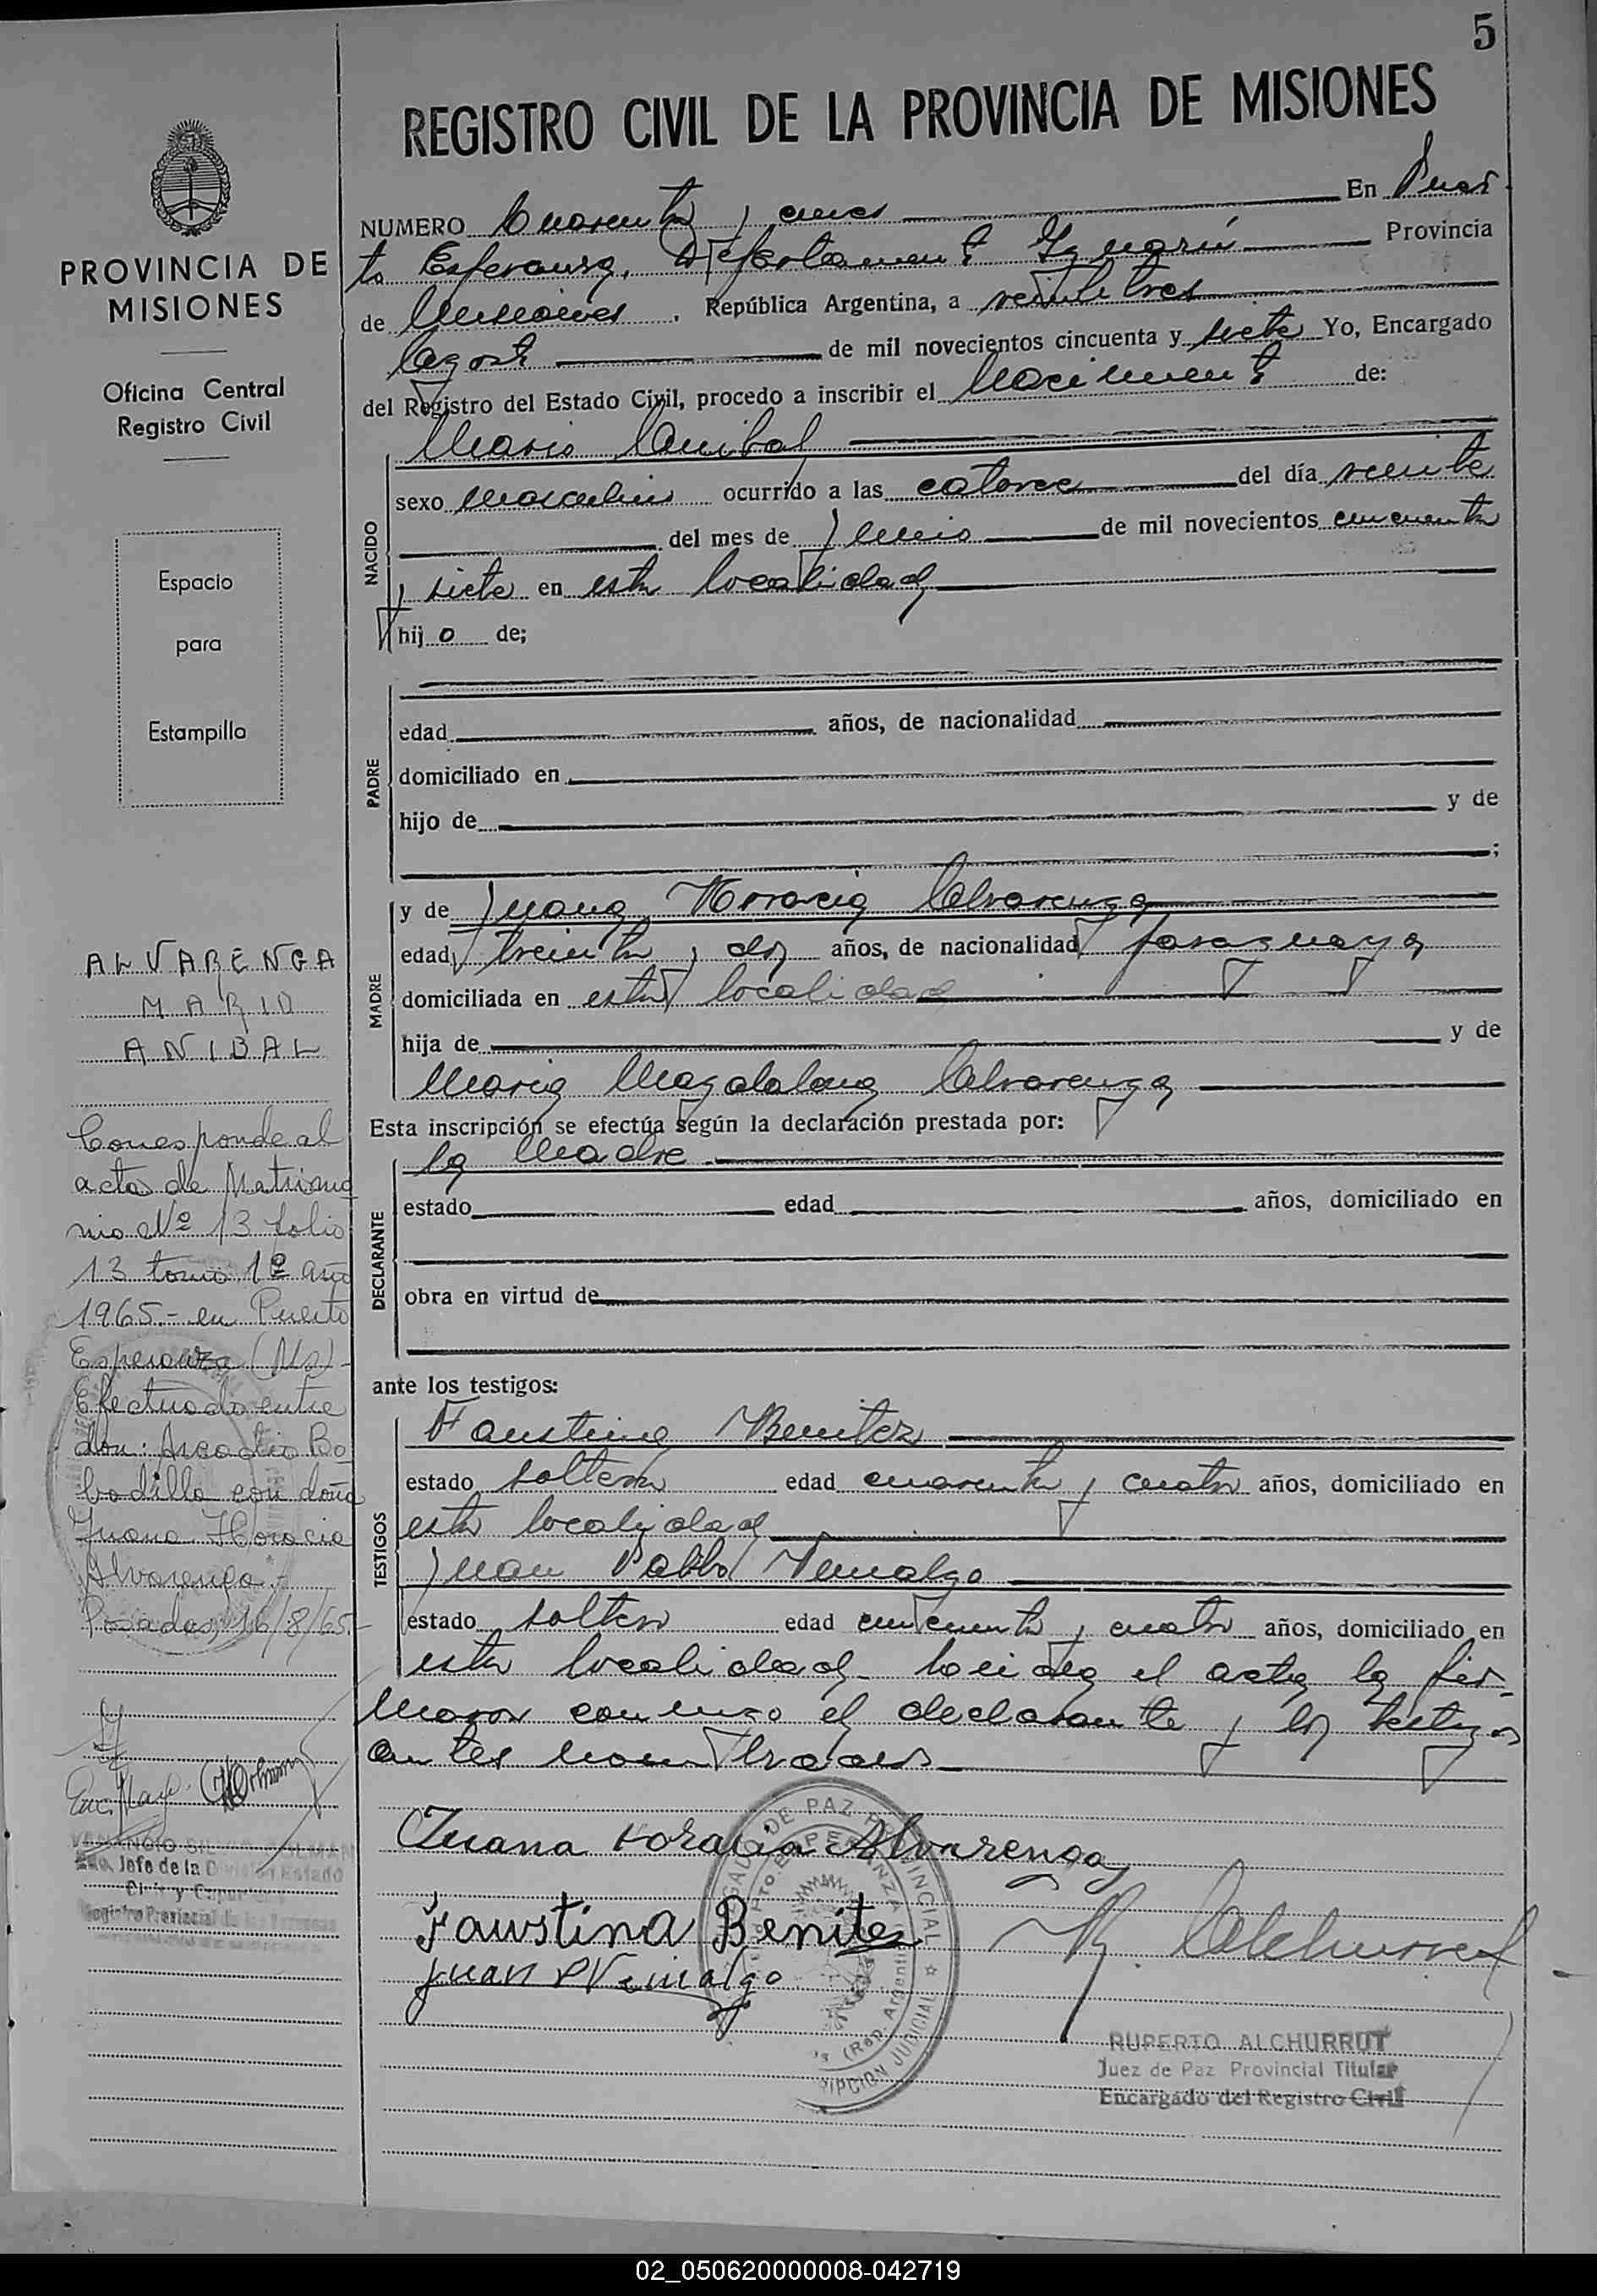 5
REGISTRO CIVIL DE LA PROVINCIA DE MISIONES
PROVINCIA DE
MISIONES
Oficina Central
Registro Civil
Espacio
para
Estampilla
ALVARENGA
MARIO
ANIBAL
Corresponde al
acta de Matrimo
nio Nº 13 folio
13 tomo 1º año
1965.- en Puerto
Esperanza (Ms)-
Efectuado entre
don: Arcadio Bo
badilla con doña
Juana Horacia
Alvarenga.-
Posadas, 16/8/65.-
Jefe de la División Estado
Civil y
Registro Provincial de las Personas
NUMERO Cuarenta y cinco En Puer
to Esperanza, Departamento Iguazú Provincia
de Misiones, República Argentina, a veintitres
Agosto de mil novecientos cincuenta y siete Yo, Encargado
del Registro del Estado Civil, procedo a inscribir el Nacimiento de:
NACIDO
Mario Anibal
sexo masculino ocurrido a las catorce del día veinte
del mes de Junio de mil novecientos cincuenta
y siete en esta localidad
hijo de;
PADRE
edad años, de nacionalidad
domiciliado en
hijo de y de
;
MADRE
y de Juana Horacia Alvarenga
edad treinta y dos años, de nacionalidad paraguaya
domiciliada en esta localidad
hija de y de
Maria Magdalena Alvarenga
Esta inscripción se efectúa según la declaración prestada por:
DECLARANTE
la Madre
estado edad años, domiciliado en
obra en virtud de
ante los testigos:
TESTIGOS
Faustina Benitez
estado soltera edad cuarenta y cuatro años, domiciliado en
esta localidad
Juan Pablo Vemalgo
estado soltero edad cincuenta y cuatro años, domiciliado en
esta localidad- Leida el acta la fir-
maron conmigo el declarante y los testigos
antes nombrados
Juana Horacia Alvarenga
Faustina Benitez
R. Alchurrut
RUPERTO ALCHURRUT
Juez de Paz Provincial Titular
Encargado del Registro Civil
02_050620000008-042719